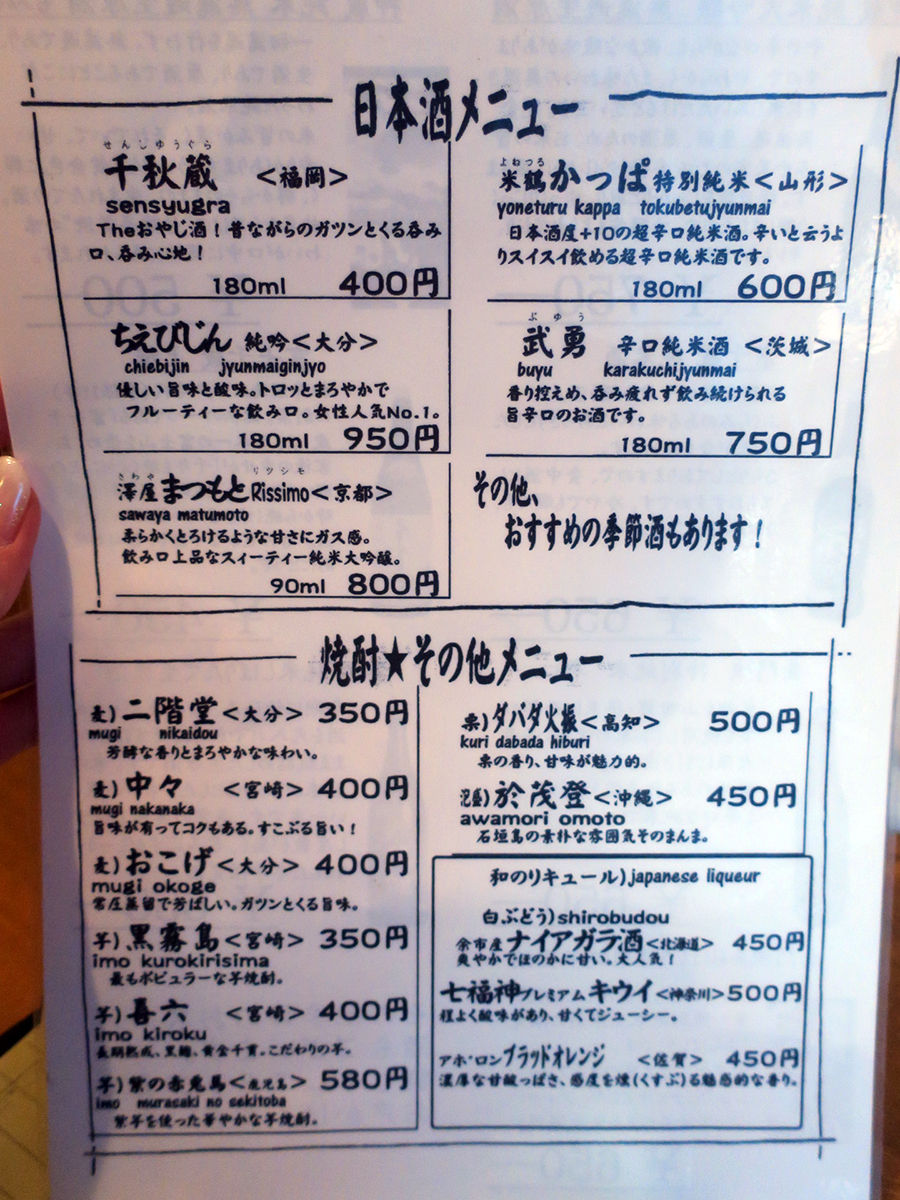 日本酒メニュー
せんじゅうぐら
千秋蔵 <福岡>
sensyugra
Theおやじ酒！昔ながらのガツンとくる呑み
口、呑み心地！
180ml 400円
ちえびじん 純吟<大分>
chiebijin jyunmaiginjyo
優しい旨味と酸味。トロッとまろやかで
フルーティーな飲み口。女性人気No.1。
180ml 950円
さわや リッシモ
澤屋まつもとRissimo<京都>
sawaya matumoto
柔らかくとろけるような甘さにガス感。
飲み口上品なスィーティー純米大吟醸。
90ml 800円
よねつる
米鶴かっぱ特別純米<山形>
yoneturu kappa tokubetujyunmai
日本酒度+10の超辛口純米酒。辛いと云うよ
りスイスイ飲める超辛口純米酒です。
180ml 600円
ぶゆう
武勇 辛口純米酒 <茨城>
buyu karakuchijyunmai
香り控えめ、呑み疲れず飲み続けられる
旨辛口のお酒です。
180ml 750円
その他、
おすすめの季節酒もあります！
焼酎★その他メニュー
麦)二階堂<大分> 350円
mugi nikaidou
芳醇な香りとまろやかな味わい。
麦)中々 <宮崎> 400円
mugi nakanaka
旨味が有ってコクもある。すこぶる旨い！
麦)おこげ<大分> 400円
mugi okoge
常圧蒸留で芳ばしい。ガツンとくる旨味。
芋)黒霧島<宮崎> 350円
imo kurokirisima
最もポピュラーな芋焼酎。
芋)喜六 <宮崎> 400円
imo kiroku
長期熟成、黒麹、黄金千貫。こだわりの芋。
芋)紫の赤兎馬<鹿児島> 580円
imo murasaki no sekitoba
紫芋を使った華やかな芋焼酎。
栗)ダバダ火振<高知> 500円
kuri dabada hiburi
栗の香り、甘味が魅力的。
泡盛)於茂登<沖縄> 450円
awamori omoto
石垣島の素朴な雰囲気そのまんま。
和のリキュール)japanese liqueur
白ぶどう)shirobudou
余市産ナイアガラ酒<北海道> 450円
爽やかでほのかに甘い。大人気！
七福神プレミアムキウイ<神奈川>500円
程よく酸味があり、甘くてジューシー。
アポロンブラッドオレンジ <佐賀> 450円
濃厚な甘酸っぱさ、感度を燻(くすぶ)る魅惑的な香り。